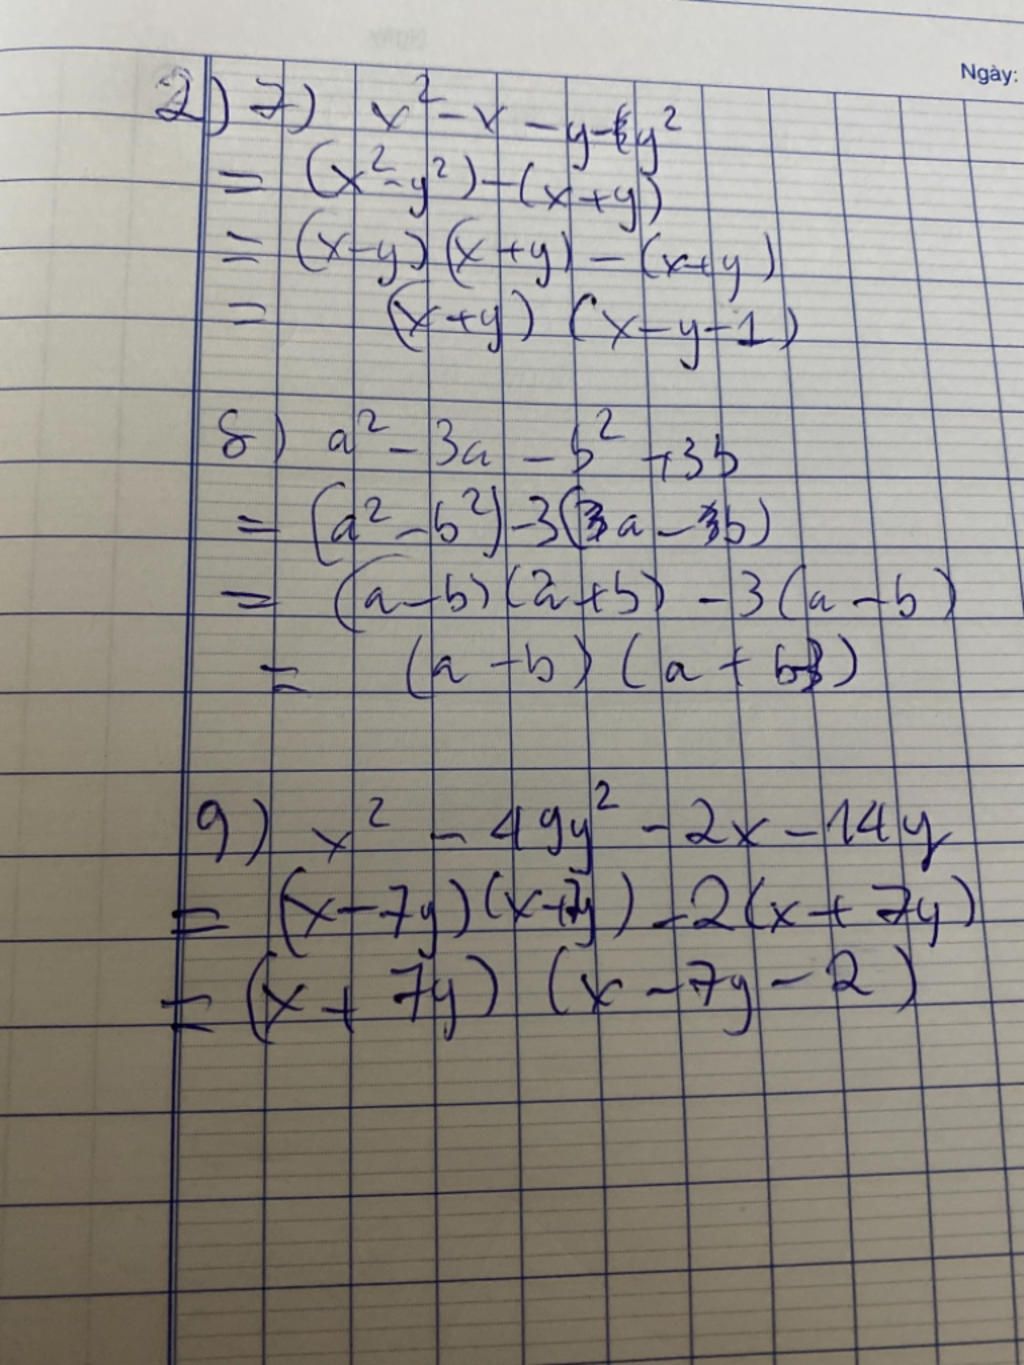 Ngày:
2) 7) x² - x - y - y²
= (x² - y²) - (x + y)
= (x - y) (x + y) - (x + y)
= (x + y) (x - y - 1)
8) a² - 3a - b² + 3b
= (a² - b²) - 3(a - b)
= (a - b) (a + b) - 3 (a - b)
= (a - b) (a + b - 3)
9) x² - 49y² - 2x - 14y
= (x - 7y) (x + 7y) - 2 (x + 7y)
= (x + 7y) (x - 7y - 2)